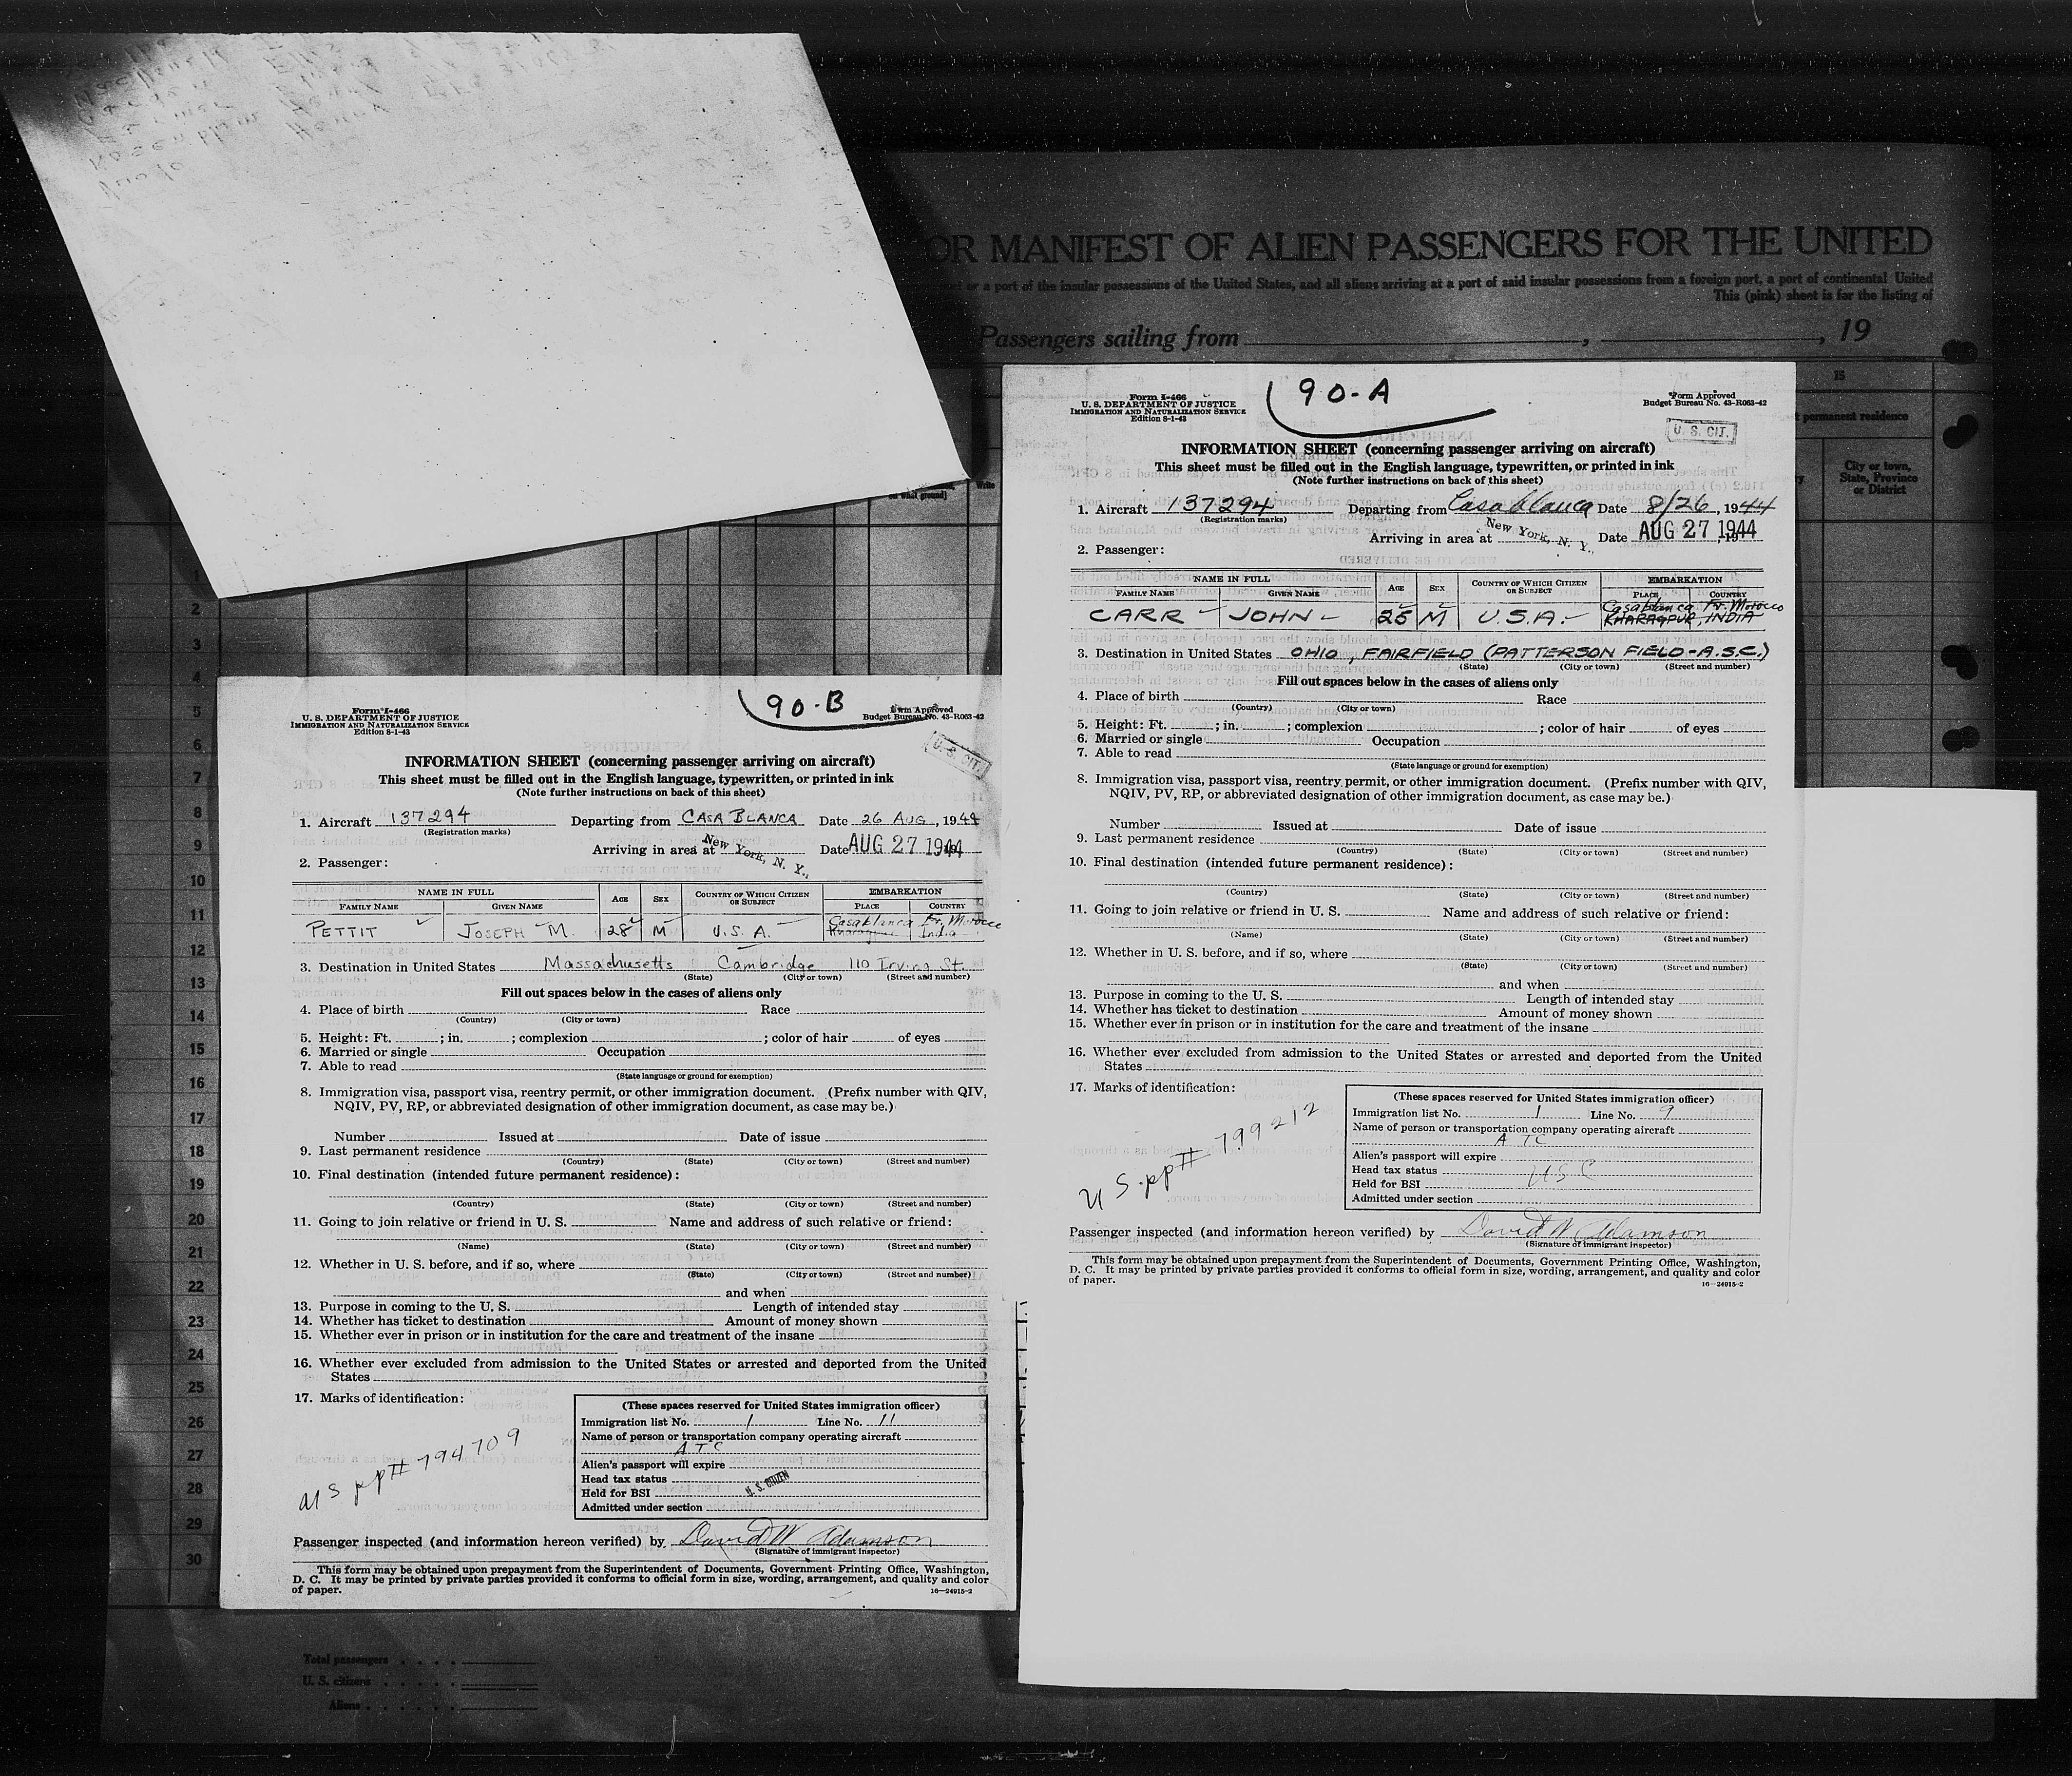 OR MANIFEST OF ALIEN PASSENGERS FOR THE UNITED
or a port of the insular possessions of the United States, and all aliens arriving at a port of said insular possessions from a foreign port, a port of continental United
This (pink) sheet is for the listing of
Passengers sailing from , , 19
15
permanent residence
City or town,
State, Province
or District
90-A
Form I-466
U. S. DEPARTMENT OF JUSTICE
IMMIGRATION AND NATURALIZATION SERVICE
Edition 8-1-43
Form Approved
Budget Bureau No. 43-R063-42
U. S. CIT.
INFORMATION SHEET (concerning passenger arriving on aircraft)
This sheet must be filled out in the English language, typewritten, or printed in ink
(Note further instructions on back of this sheet)
1. Aircraft 137294 Departing from Casablanca Date 8/26, 1944
(Registration marks)
Arriving in area at New York, N. Y., Date AUG 27 1944
2. Passenger:
NAME IN FULL AGE SEX COUNTRY OF WHICH CITIZEN OR SUBJECT EMBARKATION
FAMILY NAME GIVEN NAME PLACE COUNTRY
Casablanca Fr. Morocco
CARR JOHN 25 M U.S.A. KHARAGPUR, INDIA
3. Destination in United States OHIO, FAIRFIELD (PATTERSON FIELD-A.S.C.)
(State) (City or town) (Street and number)
Fill out spaces below in the cases of aliens only
4. Place of birth Race
(Country) (City or town)
5. Height: Ft. ; in. ; complexion ; color of hair of eyes
6. Married or single Occupation
7. Able to read
(State language or ground for exemption)
8. Immigration visa, passport visa, reentry permit, or other immigration document. (Prefix number with QIV,
NQIV, PV, RP, or abbreviated designation of other immigration document, as case may be.)
Number Issued at Date of issue
9. Last permanent residence
(Country) (State) (City or town) (Street and number)
10. Final destination (intended future permanent residence):
(Country) (State) (City or town) (Street and number)
11. Going to join relative or friend in U. S. Name and address of such relative or friend:
(Name) (State) (City or town) (Street and number)
12. Whether in U. S. before, and if so, where
(State) (City or town) (Street and number)
and when
13. Purpose in coming to the U. S. Length of intended stay
14. Whether has ticket to destination Amount of money shown
15. Whether ever in prison or in institution for the care and treatment of the insane
16. Whether ever excluded from admission to the United States or arrested and deported from the United
States
17. Marks of identification:
U S pp# 799212
(These spaces reserved for United States immigration officer)
Immigration list No. 1 Line No. 9
Name of person or transportation company operating aircraft
A T C
Alien's passport will expire
Head tax status U S C
Held for BSI
Admitted under section
Passenger inspected (and information hereon verified) by David W. Adamson
(Signature of immigrant inspector)
This form may be obtained upon prepayment from the Superintendent of Documents, Government Printing Office, Washington,
D. C. It may be printed by private parties provided it conforms to official form in size, wording, arrangement, and quality and color
of paper.
16—24915-2
90-B
Form I-466
U. S. DEPARTMENT OF JUSTICE
IMMIGRATION AND NATURALIZATION SERVICE
Edition 8-1-43
Form Approved
Budget Bureau No. 43-R063-42
U. S. CIT.
INFORMATION SHEET (concerning passenger arriving on aircraft)
This sheet must be filled out in the English language, typewritten, or printed in ink
(Note further instructions on back of this sheet)
1. Aircraft 137294 Departing from CASA BLANCA Date 26 AUG, 1944
(Registration marks)
Arriving in area at New York, N. Y., Date AUG 27 1944
2. Passenger:
NAME IN FULL AGE SEX COUNTRY OF WHICH CITIZEN OR SUBJECT EMBARKATION
FAMILY NAME GIVEN NAME PLACE COUNTRY
Casablanca Fr. Morocco
PETTIT JOSEPH M. 28 M U.S.A. Kharagpur India
3. Destination in United States Massachusetts Cambridge 110 Irving St.
(State) (City or town) (Street and number)
Fill out spaces below in the cases of aliens only
4. Place of birth Race
(Country) (City or town)
5. Height: Ft. ; in. ; complexion ; color of hair of eyes
6. Married or single Occupation
7. Able to read
(State language or ground for exemption)
8. Immigration visa, passport visa, reentry permit, or other immigration document. (Prefix number with QIV,
NQIV, PV, RP, or abbreviated designation of other immigration document, as case may be.)
Number Issued at Date of issue
9. Last permanent residence
(Country) (State) (City or town) (Street and number)
10. Final destination (intended future permanent residence):
(Country) (State) (City or town) (Street and number)
11. Going to join relative or friend in U. S. Name and address of such relative or friend:
(Name) (State) (City or town) (Street and number)
12. Whether in U. S. before, and if so, where
(State) (City or town) (Street and number)
and when
13. Purpose in coming to the U. S. Length of intended stay
14. Whether has ticket to destination Amount of money shown
15. Whether ever in prison or in institution for the care and treatment of the insane
16. Whether ever excluded from admission to the United States or arrested and deported from the United
States
17. Marks of identification:
U S pp# 794709
(These spaces reserved for United States immigration officer)
Immigration list No. 1 Line No. 11
Name of person or transportation company operating aircraft
A T C
Alien's passport will expire
Head tax status
Held for BSI U. S. CITIZEN
Admitted under section
Passenger inspected (and information hereon verified) by David W. Adamson
(Signature of immigrant inspector)
This form may be obtained upon prepayment from the Superintendent of Documents, Government Printing Office, Washington,
D. C. It may be printed by private parties provided it conforms to official form in size, wording, arrangement, and quality and color
of paper.
16—24915-2
1
2
3
4
5
6
7
8
9
10
11
12
13
14
15
16
17
18
19
20
21
22
23
24
25
26
27
28
29
30
Total passengers
U. S. citizens
Aliens